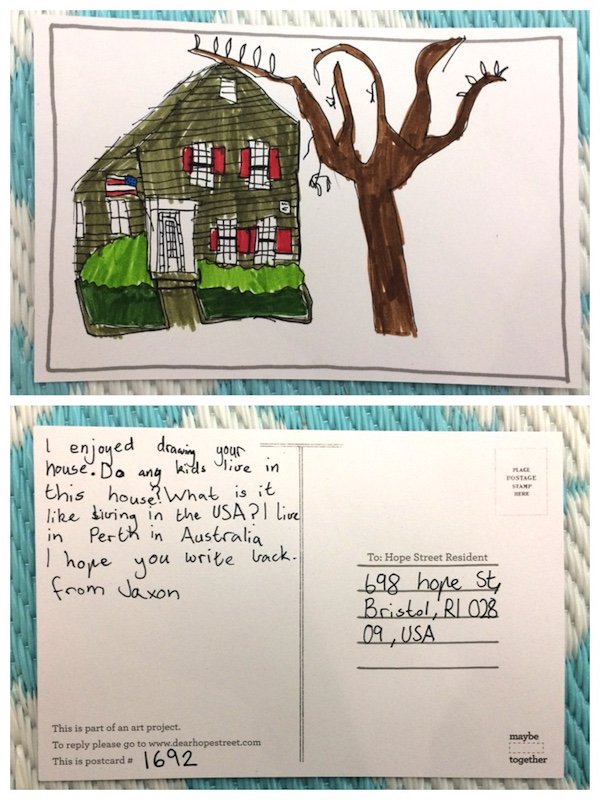 I enjoyed drawing your
house. Do any kids live in
this house? What is it
like living in the USA? I live
in Perth in Australia
I hope you write back.
from Jaxon
This is part of an art project.
To reply please go to www.dearhopestreet.com
This is postcard # 1692
PLACE
POSTAGE
STAMP
HERE
To: Hope Street Resident
698 hope St,
Bristol, RI 028
09, USA
maybe
together